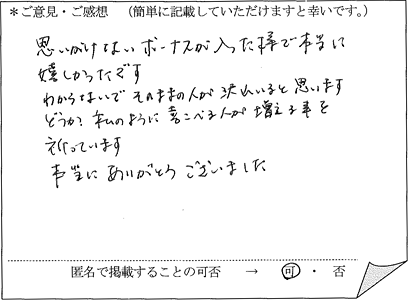 ＊ご意見・ご感想　（簡単に記載していただけますと幸いです。）
思いがけないボーナスが入った様で本当に
嬉しかったです
わからないでそのままの人が沢山いると思います
どうか？私のように喜こべる人が増える事を
祈っています
本当にありがとうございました
匿名で掲載することの可否　→　可・否